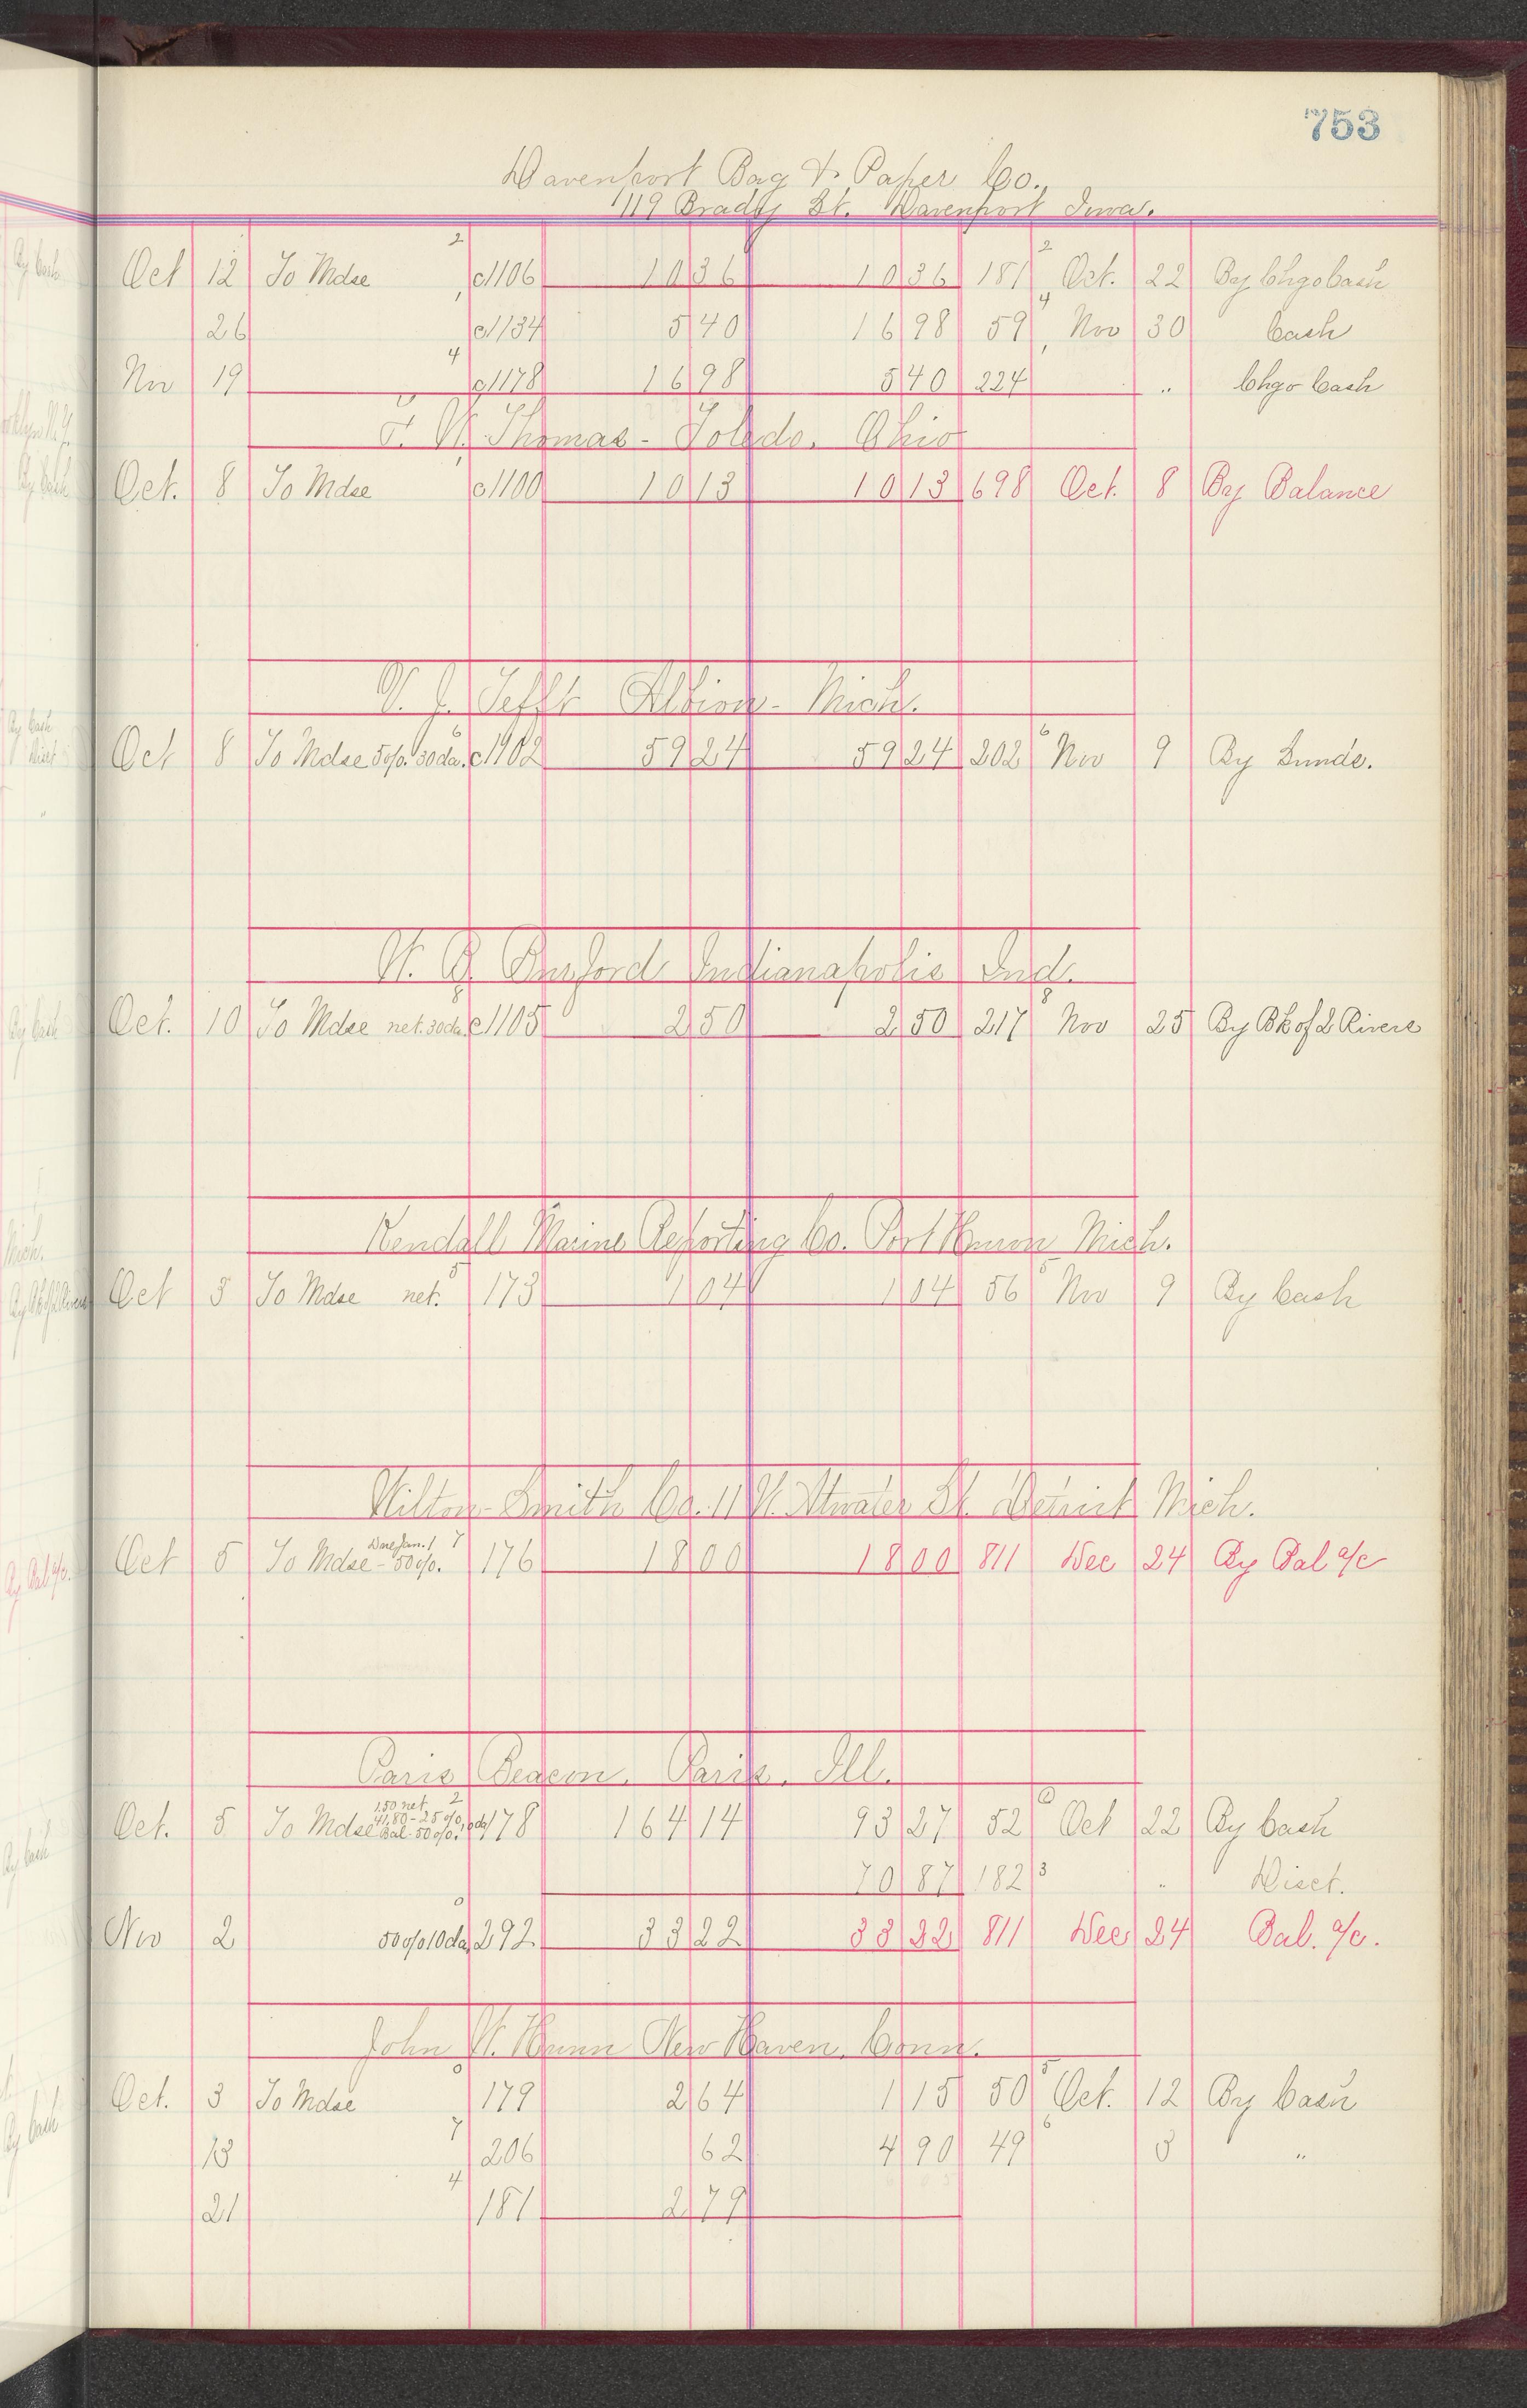 753
Davenport Bag & Paper Co.
119 Brady St. Davenport Iowa.
Oct 12 To Mdse 2 c1106 10 36 10 36 181 2 Oct. 22 By Chgo Cash
26 c1134 5 40 16 98 59 4 Nov 30 Cash
Nov 19 4 c1178 16 98 5 40 224 " Chgo Cash
F. W. Thomas - Toledo, Ohio
Oct. 8 To Mdse c1100 10 13 10 13 698 Oct. 8 By Balance
V. J. Tefft Albion - Mich.
Oct 8 To Mdse 50%. 30 da. 6 c1902 59 24 59 24 202 6 Nov 9 By Sunds.
Indianapolis Ind.
Oct. 10 To Mdse net. 30 da. 8 c1105 2 50 2 50 217 8 Nov 25 By Bk of 2 Rivers
Kendall Marine Reporting Co. Port Huron Mich.
Oct 3 To Mdse net. 5 173 1 04 1 04 56 5 Nov 9 By Cash
Wilton-Smith Co. 11 W. Atwater St. Detroit Mich.
Due Jan. 1 7
Oct 5 To Mdse - 50%. 176 18 00 18 00 811 Dec 24 By Bal a/c
Paris Beacon. Paris. Ill.
1.50 net. 2
41.80 - 25%
Oct. 5 To Mdse Bal. 50%. 10 da 178 164 14 93 27 52 0 Oct 22 By Cash
70 87 182 3 " Disct.
Nov 2 50% 10 da. 0 292 33 22 33 22 811 Dec 24 Bal. a/c.
John W. Hunn New Haven. Conn.
Oct. 3 To Mdse 0 179 2 64 1 15 50 5 Oct. 12 By Cash
13 7 206 62 4 90 49 6 3 "
21 4 181 2 79